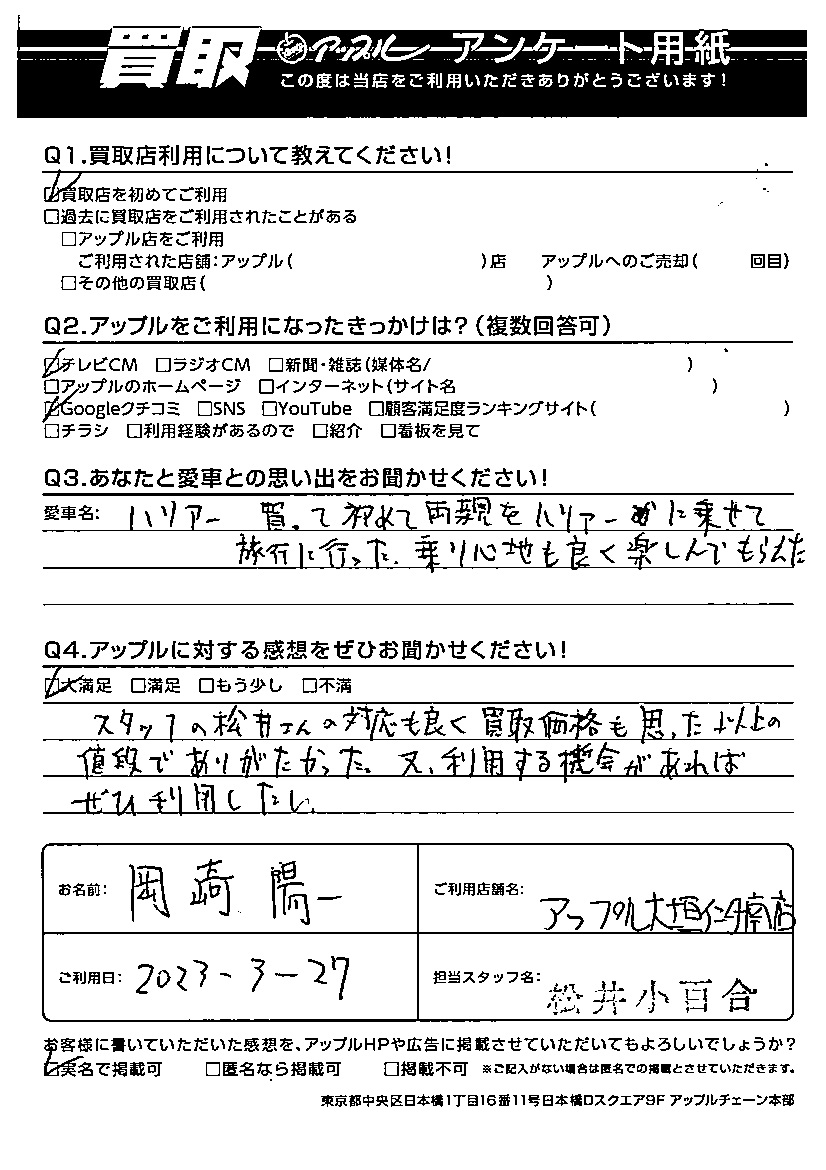 買取 アップル アンケート用紙
この度は当店をご利用いただきありがとうございます!
Q1.買取店利用について教えてください!
☑買取店を初めてご利用
□過去に買取店をご利用されたことがある
□アップル店をご利用
ご利用された店舗:アップル( )店 アップルへのご売却( 回目)
□その他の買取店( )
Q2.アップルをご利用になったきっかけは?(複数回答可)
☑テレビCM □ラジオCM □新聞・雑誌(媒体名/ )
□アップルのホームページ □インターネット(サイト名 )
☑Googleクチコミ □SNS □YouTube □顧客満足度ランキングサイト( )
□チラシ □利用経験があるので □紹介 □看板を見て
Q3.あなたと愛車との思い出をお聞かせください!
愛車名: ハリアー 買って初めて両親をハリアーに乗せて
旅行に行った。乗り心地も良く楽しんでもらえた
Q4.アップルに対する感想をぜひお聞かせください!
☑大満足 □満足 □もう少し □不満
スタッフの松井さんの対応も良く買取価格も思った以上の
値段でありがたかった。又、利用する機会があれば
ぜひ利用したい。
お名前: 岡﨑 陽一 ご利用店舗名: アップル大垣インター南店
ご利用日: 2023-3-27 担当スタッフ名: 松井小百合
お客様に書いていただいた感想を、アップルHPや広告に掲載させていただいてもよろしいでしょうか?
☑実名で掲載可 □匿名なら掲載可 □掲載不可 ※ご記入がない場合は匿名での掲載とさせていただきます。
東京都中央区日本橋1丁目16番11号日本橋Dスクエア9F アップルチェーン本部